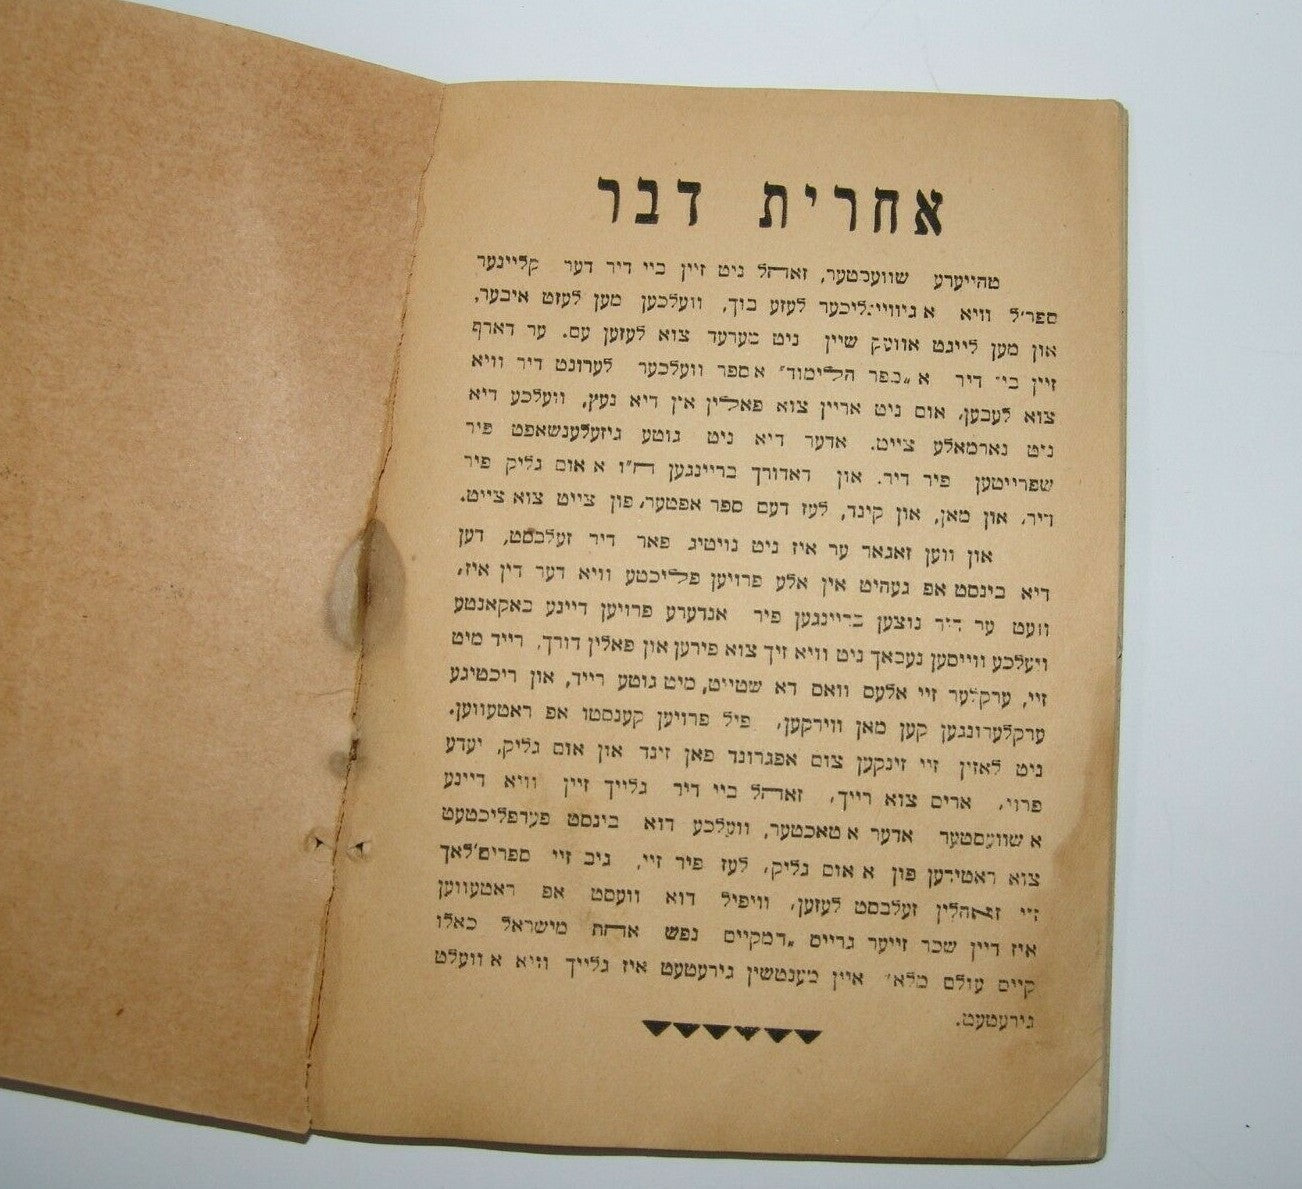 אחרית דבר
טהייערע שוועכטער, זאהל ניט זיין ביי דיר דער קליינער
ספר'ל וויא א גיוויינליכער לעזע בוך, וועלכען מען לעזט איבער,
און מען לייגט אוועק שיין ניט מערער צוא לעזען עס. ער דארף
זיין ביי דיר א „ספר הלימוד" א ספר וועלכער לערונט דיר וויא
צוא לעבען, אום ניט אריין צוא פאלין אין דיא נעץ, וועלכע דיא
ניט נארמאלע צייט. אדער דיא ניט גוטע גיזעלענשאפט פיר
שפרייטען פיר דיר. און דאדורך בריינגען ח"ו א אום גליק פיר
דיר. און מאן, און קינד, לעז דעם ספר אפטער, פון צייט צוא צייט.
און ווען זאגאר ער איז ניט נויטיג פאר דיר זעלבסט, דען
דיא בינסט אפ געהיט אין אלע פרויען פליכטע וויא דער דין איז,
וועט ער דיר נוצען בריינגען פיר אנדערע פרויען דיינע באקאנטע
וועלכע ווייסען נעבאך ניט וויא זיך צוא פירען און פאלין דורך. רייד מיט
זיי, ערקלער זיי אלעס וואס דא שטייט, מיט גוטע רייד, און ריכטיגע
ערקלערונגען קען מאן ווירקען, פיל פרויען קענסטו אפ ראטעווען.
ניט לאזין זיי זינקען צום אפגרונד פאן זינד און אום גליק, יעדע
פרוי, ארים צוא רייך, זאהל ביי דיר גלייך זיין וויא דיינע
א שוועסטער אדער א טאכטער, וועלכע דוא בינסט פערפליכטעט
צוא ראטירען פון א אום גליק, לעז פיר זיי, גיב זיי ספרים'לאך
זיי זאהלין זעלבסט לעזען, וויפיל דוא וועסט אפ ראטעווען
איז דיין שכר זייער גרויס „המקיים נפש אחת מישראל כאלו
קיים עולם מלא" איין מענטשין גירעטעט איז גלייך וויא א וועלט
גירעטעט.